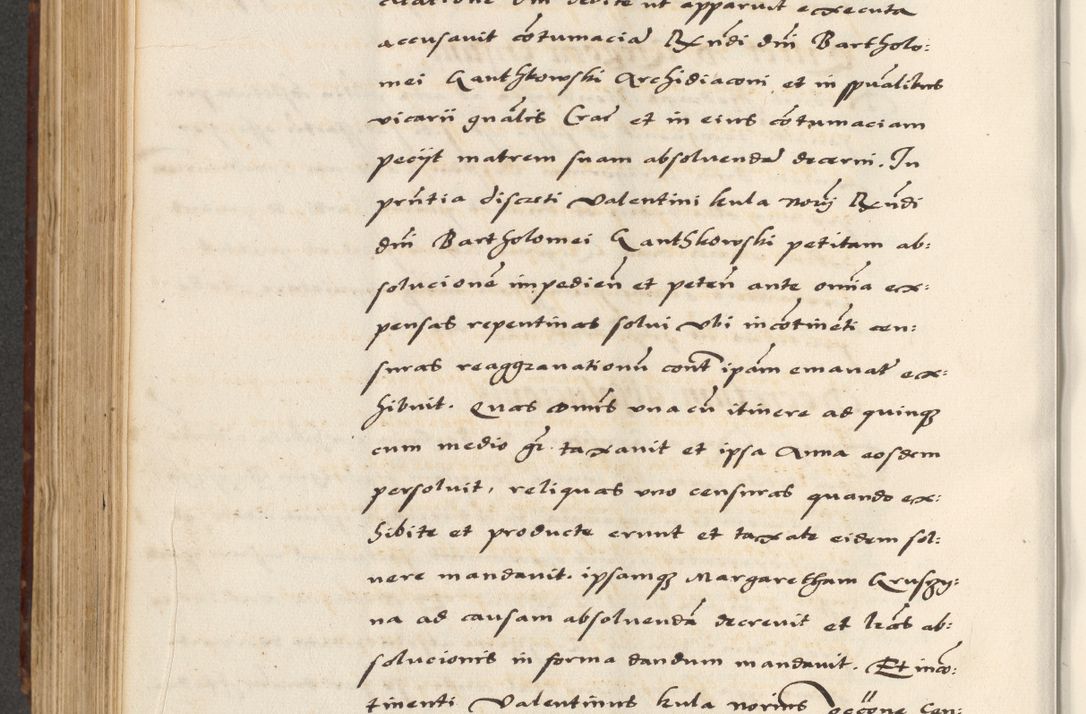 citatione dni debite ut apparuit executa
accusavit cōtumaciā Rxn̄di dn̄i Bartholo:
mei Ganthkowski Archidiaconi et in spūalibus
vicarii gnālis Crac̄ et in eius cōtumaciam
peciit matrem suam absoluendā decerni. In
prn̄tia discreti Valentini kula norij Rxn̄di
dn̄i Bartholomei Ganthkowski petitam ab:
solucionē impedien̄ et peten̄ ante om̄ia ex:
pensas repentinas solui vbi incōtinēti cen:
suras reaggrauationū cont̄ ipām emanat̄ ex:
hibuit. Quas dom̄s una cū itinere ad quinqȝ
cum medio gr̄ taxauit et ipsa Anna eosdem
persoluit, reliquas uero censuras quando ex:
hibite et producte erunt et taxate eidem sol:
uere mandauit. ipsamqȝ Margaretham Gruszy:
na ad causam absoluendā decreuit et lrās ab:
solucionis in forma dandum mandauit. Et incō:
tinenti Valentinus kula norius cen: